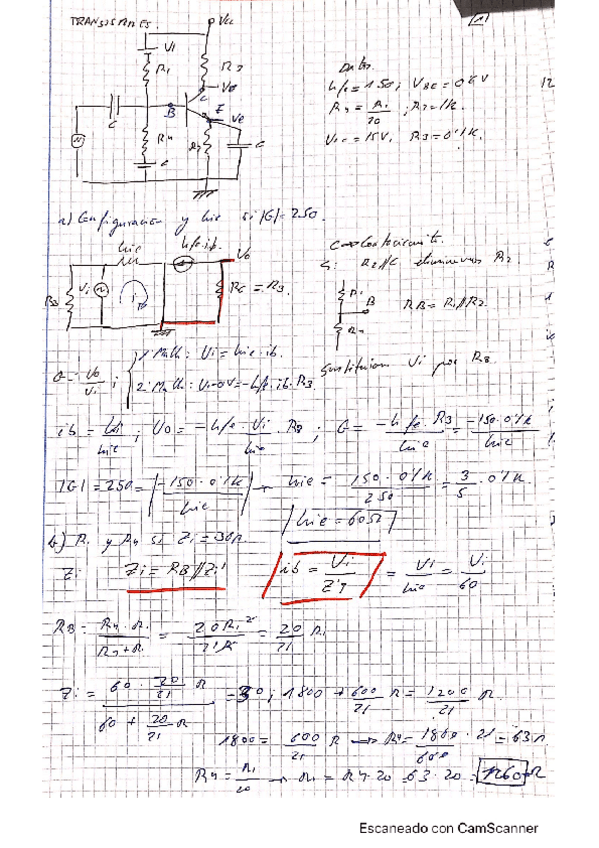 TRANSISTORES.
Vcc
1
V1
R1
R3
Vo
C
B
E
Ve
C
R4
R2
C
C
Datos.
hfe = 150; VBE = 0'6V
R4 = R1/20; R2 = 1k.
Vcc = 15V. R3 = 0'1K.
a) Configuración y hie si |G| = 250.
hie
hfe·ib.
Vo
Vi
ib
RC = R3.
B
RB = R1//R2.
Sustituimos Vi por RB.
G = Vo/Vi;
1ª Malla: Vi = hie·ib.
2ª Malla: Vo-0V = -hfe·ib·R3
; Vo = -hfe · Vi/hie · R3; G = -hfe·R3/hie = -150·0'1k/hie
|G| = 250 = |-150·0'1k/hie| → hie = 150·0'1k/250 = 3/5·0'1k.
hie = 60Ω
b) R1 y R4 si Zi = 30Ω.
Zi
Zi = RB//Zi'
ib = Vi/Z'i = Vi/hie = Vi/60
RB = R4·R1/R4+R1 = 20/21 R1
60 + 20/21 R
1800 + 600/21 R = 1200/21 R.
1800 = 600/21 R → R4 = 1800·21/600 = 63Ω
R4 = R1/20 → R1 = R4·20 = 63·20 = 1260Ω
Escaneado con CamScanner